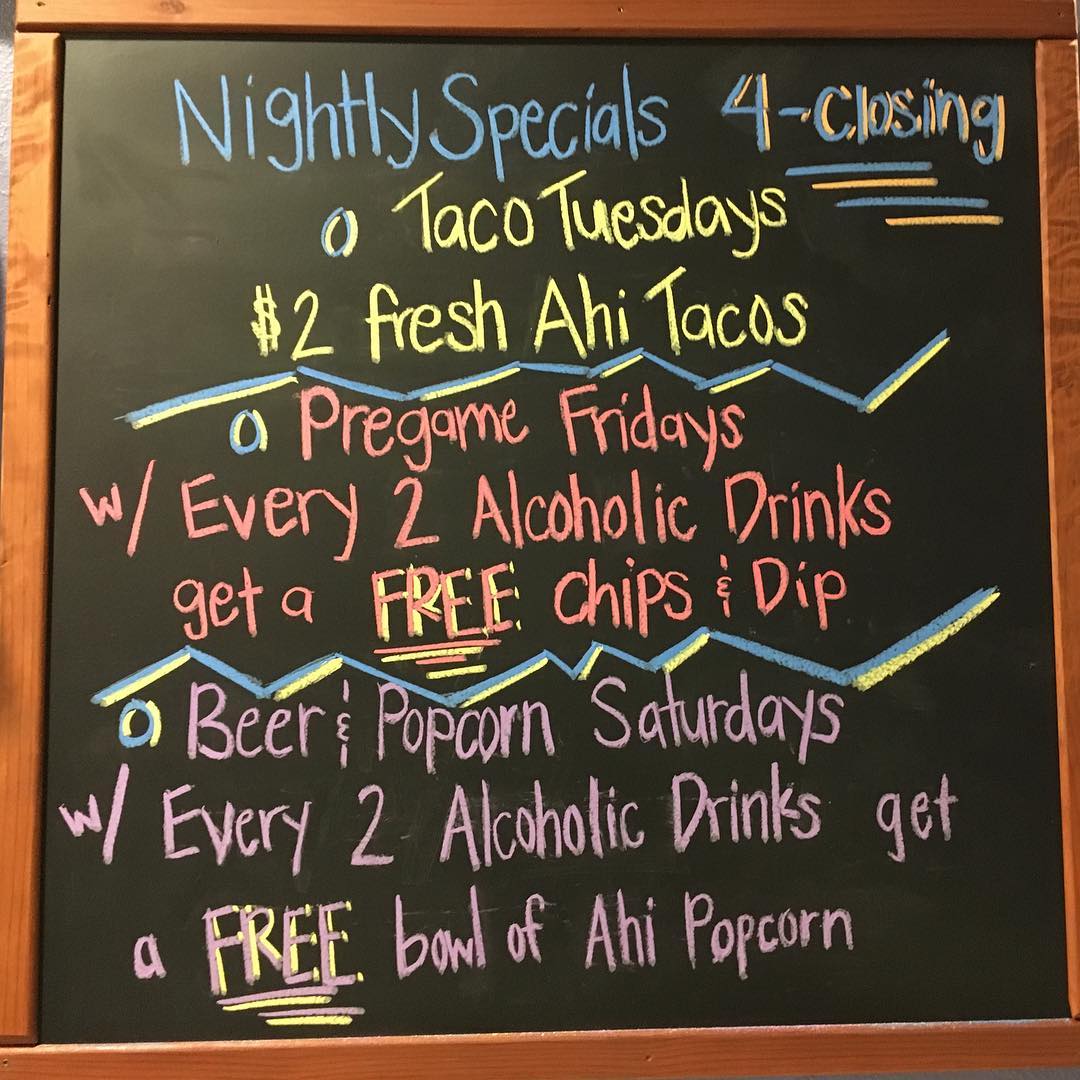 Nightly Specials 4-Closing
Taco Tuesdays
$2 fresh Ahi Tacos
Pregame Fridays
w/ Every 2 Alcoholic Drinks
get a FREE chips & Dip
Beer & Popcorn Saturdays
w/ Every 2 Alcoholic Drinks get
a FREE bowl of Ahi Popcorn